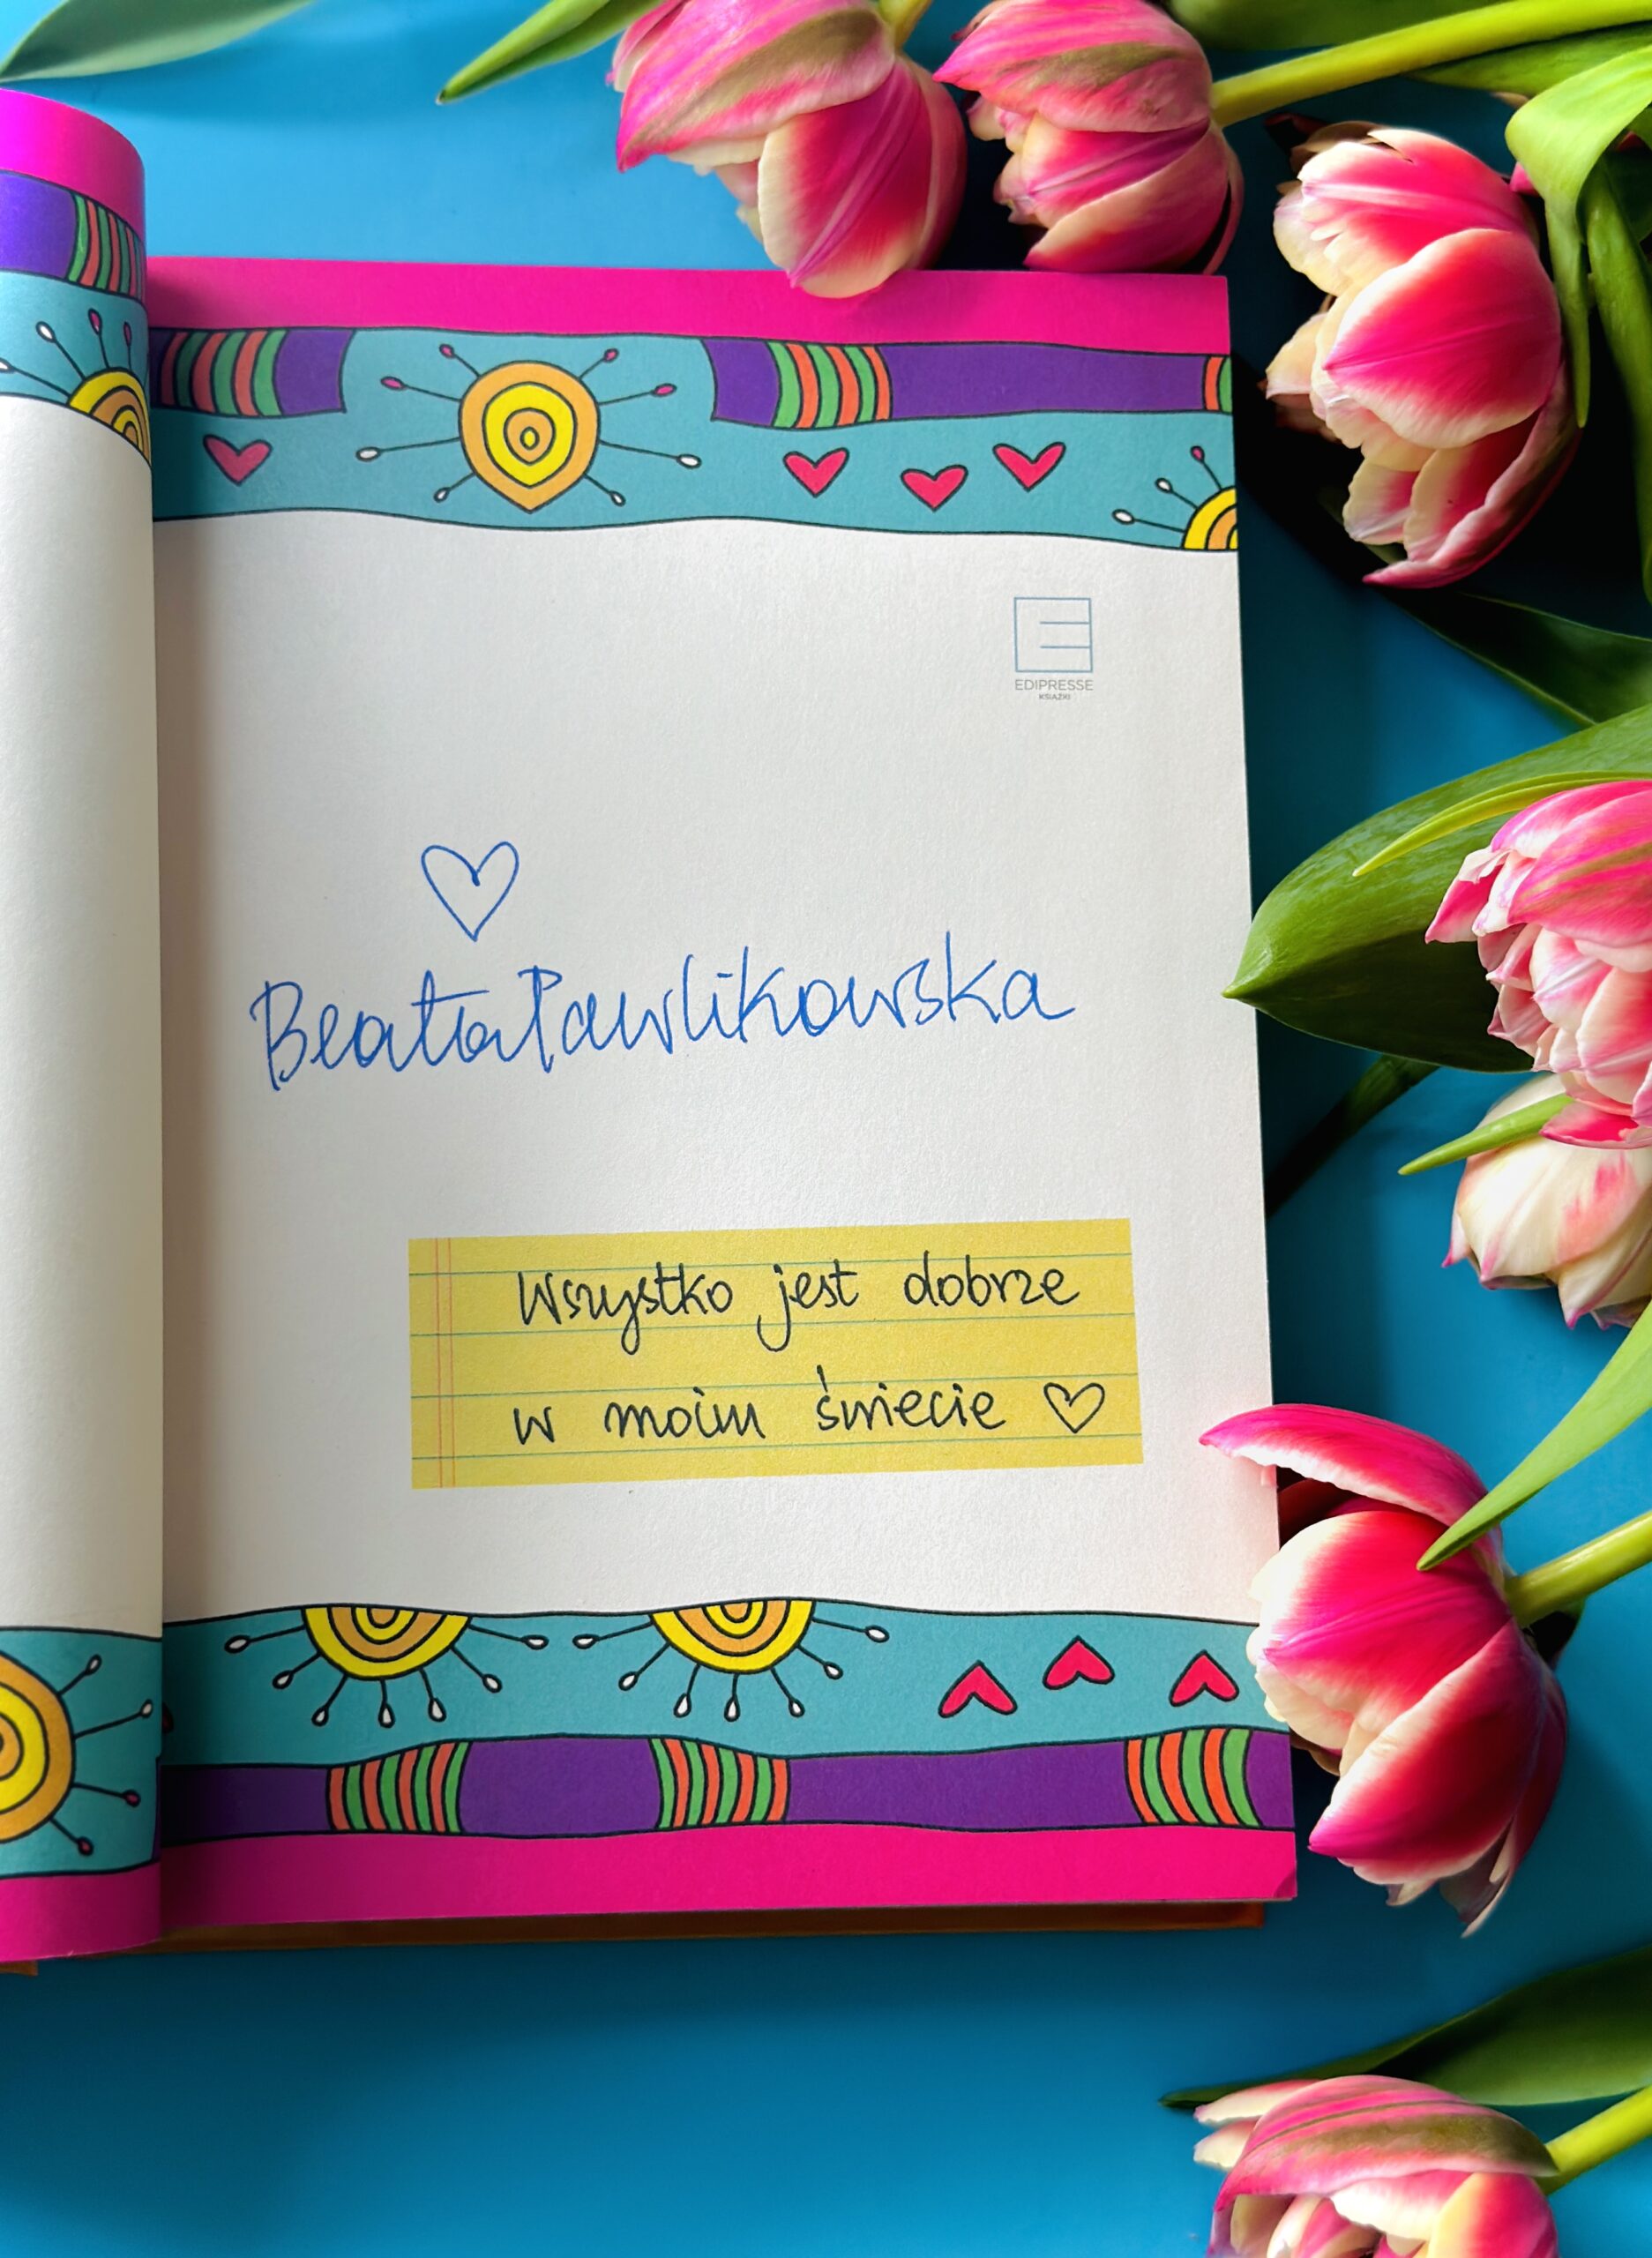 EDIPRESSE
KSIĄŻKI
♡
Beata Pawlikowska
Wszystko jest dobrze
w moim świecie ♡